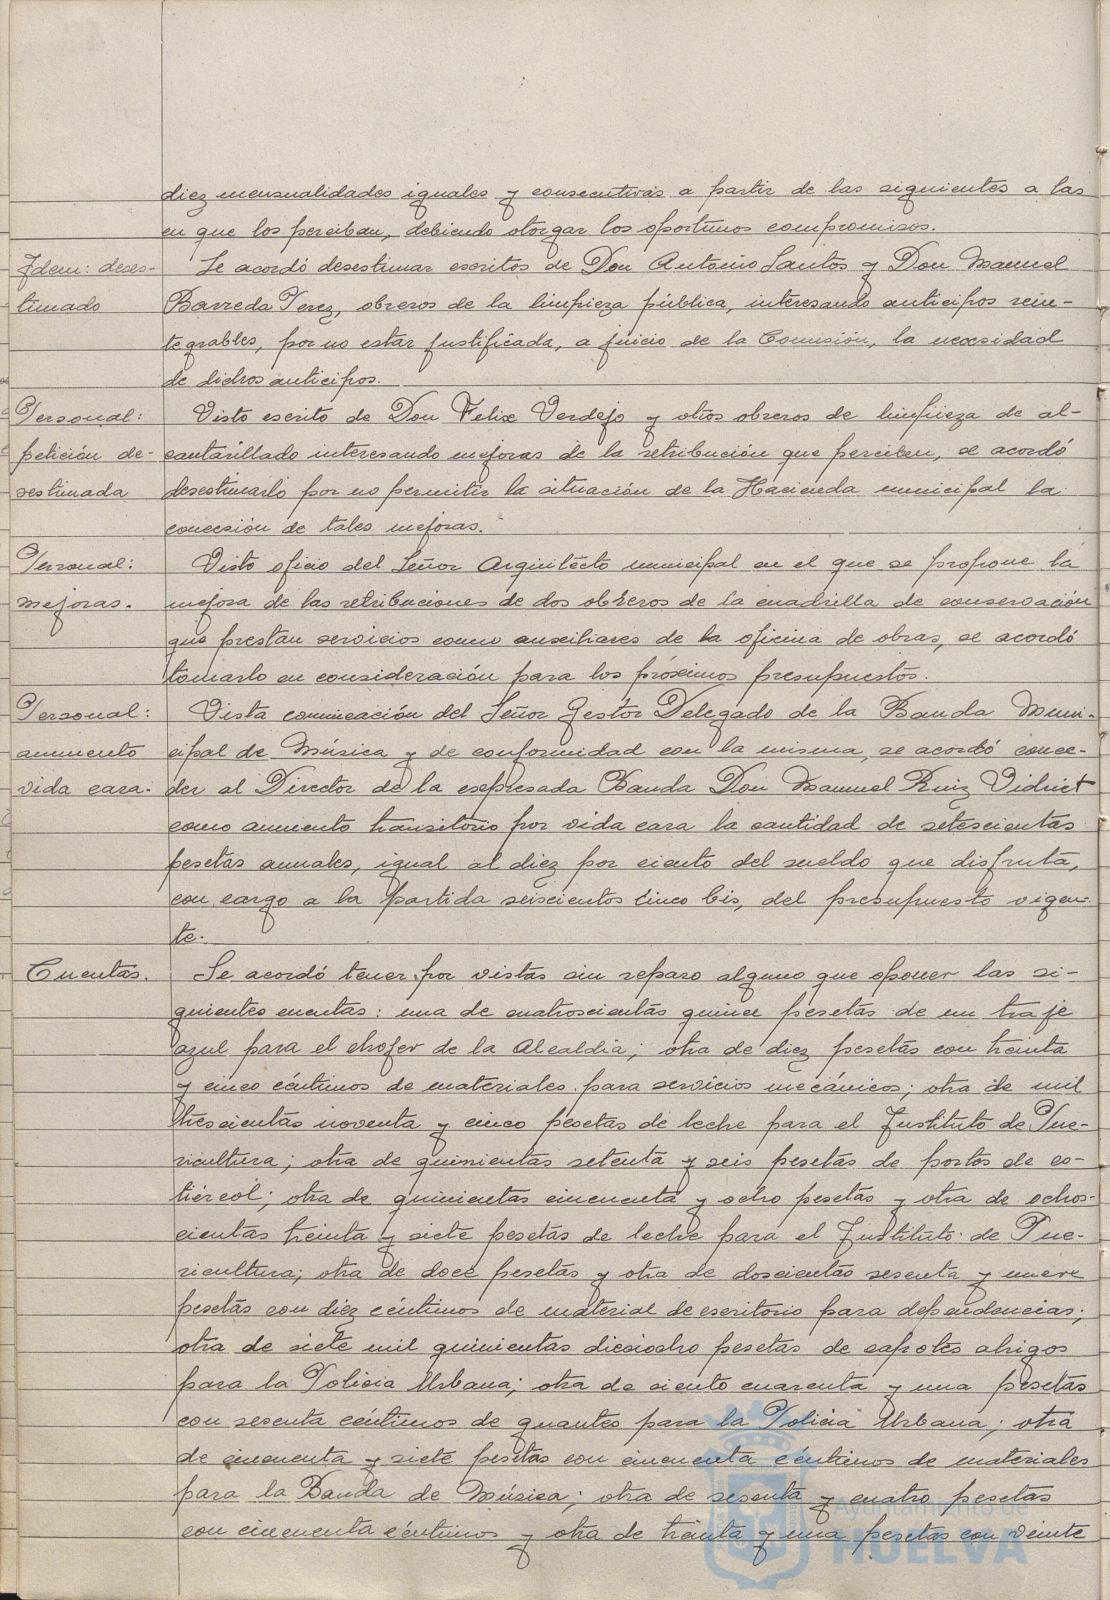 diez mensualidades iguales y consecutivas a partir de las siguientes a las
en que los perciban, debiendo otorgar los oportunos compromisos.
Idem: deses-
timado
Se acordó desestimar escritos de Don Antonio Santos y Don Manuel
Barreda Perez, obreros de la limpieza pública, interesando anticipos rein-
tegrables, por no estar justificada, a juicio de la Comisión, la necesidad
de dichos anticipos.
Personal:
petición de-
sestimada
Visto escrito de Don Felix Verdejo y otros obreros de limpieza de al-
cantarillado interesando mejoras de la retribución que perciben, se acordó
desestimarlo por no permitir la situación de la Hacienda municipal la
concesión de tales mejoras.
Personal:
mejoras.
Visto oficio del Señor Arquitécto municipal en el que se propone la
mejora de las retribuciones de dos obreros de la cuadrilla de conservación
que prestan servicios como auxiliares de la oficina de obras, se acordó
tomarlo en consideración para los próximos presupuestos.
Personal:
aumento
vida cara.
Vista comunicación del Señor Gestór Delegado de la Banda Muni-
cipal de Música y de conformidad con la misma, se acordó conce-
der al Director de la expresada Banda Don Manuel Ruiz Vidriet
como aumento transitorio por vida cara la cantidad de setescientas
pesetas anuales, igual al diez por ciento del sueldo que disfruta,
con cargo a la partida seiscientos cinco bis, del presupuesto vigen-
te.
Cuentas.
Se acordó tener por vistas sin reparo alguno que oponer las si-
guientes cuentas: una de cuatroscientas quince pesetas de un traje
azul para el chofer de la Alcaldia; otra de diez pesetas con treinta
y cinco céntimos de materiales para servicios mecánicos; otra de mil
trescientas noventa y cinco pesetas de leche para el Instituto de Pue-
ricultura; otra de quinientas setenta y seis pesetas de portes de es-
tiércol; otra de quinientas cincuenta y ocho pesetas y otra de ochos-
cientas treinta y siete pesetas de leche para el Instituto de Pue-
ricultura; otra de doce pesetas y otra de doscientas sesenta y nueve
pesetas con diez céntimos de material de escritorio para dependencias;
otra de siete mil quinientas dieciocho pesetas de capotes abrigos
para la Policia Urbana; otra de ciento cuarenta y una pesetas
con sesenta céntimos de guantes para la Policia Urbana; otra
de cincuenta y siete pesetas con cincuenta céntimos de materiales
para la Banda de Música; otra de sesenta y cuatro pesetas
con cincuenta céntimos y otra de treinta y una pesetas con veinte
Ayuntamiento de
HUELVA